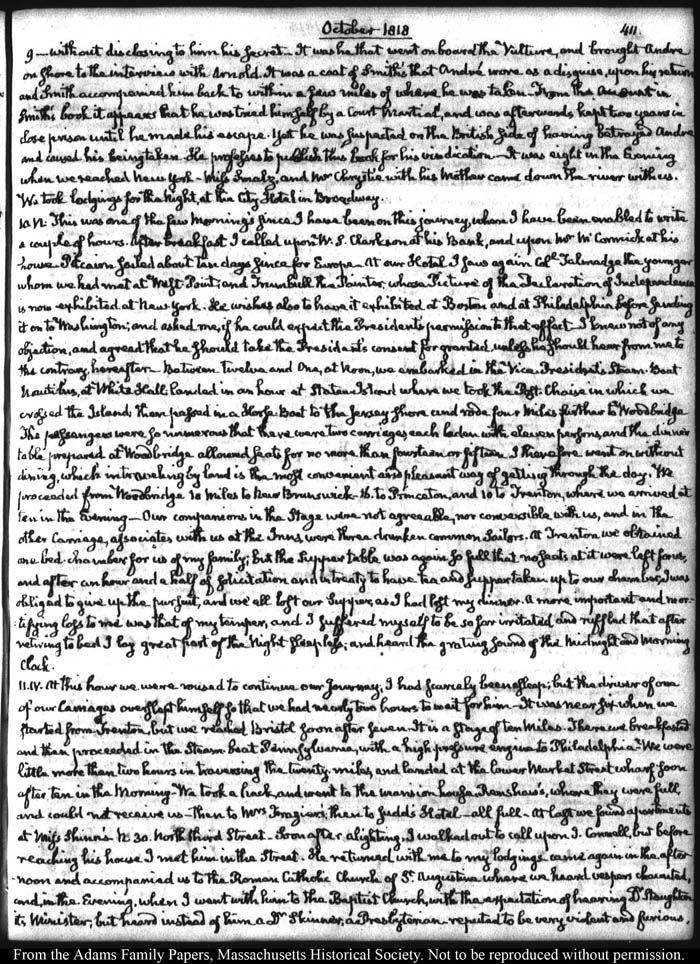 October 1818
411.
9 — without disclosing to him his secret — It was he that went on board the Vulture, and brought André
on shore to the interview with Arnold. It was a coat of Smith's that André wore as a disguise, upon his return
and Smith accompanied him back to within a few miles of where he was taken — From the account in
Smith's book it appears that he was tried himself by a Court Martial, and was afterwards kept two years in
close prison until he made his escape. Yet he was suspected on the British side of having betrayed André
and caused his being taken. He professes to publish this book for his vindication — It was eight in the Evening
when we reached New York — Miss Smalz, and Mr Chrystie with his Mother came down the river with us.
We took lodgings for the Night, at the City Hotel in Broadway.
10. IV. This was one of the few Mornings since I have been on this journey, when I have been enabled to write
a couple of hours. After breakfast I called upon W. S. Clarkson at his Bank, and upon Mr McCormick at his
house. Pitcairn sailed about ten days since for Europe — At our Hotel I saw again Coll. Talmadge the younger
whom we had met at West-Point; and Trumbull the Painter, whose Picture of the Declaration of Independence
is now exhibited at New York. He wishes also to have it exhibited at Boston and at Philadelphia before sending
it on to Washington; and asked me, if he could expect the President's permission to that effect — I knew not of any
objection, and agreed that he should take the President's consent for granted, unless he should hear from me to
the contrary, hereafter — Between Twelve and One, at Noon, we embarked in the Vice-President's Steam-Boat
Nautilus, at White Hall. landed in an hour at Staten Island where we took the Post-Chaise in which we
crossed the Island; then passed in a Horse Boat to the Jersey shore and rode four Miles further to Woodbridge
The passengers were so numerous that there were two carriages each laden with eleven persons, and the dinner
table prepared at Woodbridge allowed seats for no more than fourteen or fifteen. I therefore went on without
dining, which in travelling by land is the most convenient and pleasant way of getting through the day. We
proceeded from Woodbridge 10 Miles to New Brunswick — 16. to Princeton, and 10 to Trenton, where we arrived at
ten in the Evening — Our companions in the Stage were not agreeable, nor conversible with us, and in the
other Carriage, associates with us at the Inns, were three drunken common Sailors. At Trenton we obtained
one bed-chamber for us of my family; but the Supper table was again so full that no seats at it were left for us,
and after an hour and a half of solicitation and intreaty to have tea and supper taken up to our chamber, I was
obliged to give up the pursuit, and we all lost our Supper, as I had lost my dinner. A more important and mor-
tifying loss to me was that of my temper, and I suffered myself to be so far irritated, and ruffled that after
retiring to bed I lay great part of the Night sleepless; and heard the grating sound of the Midnight and Morning
Clock.
11. IV. At this hour we were roused to continue our Journey; I had scarcely been asleep; but the driver of one
of our Carriages overslept himself so that we had nearly two hours to wait for him — It was near six when we
started from Trenton, but we reached Bristol soon after seven. It is a stage of ten Miles. There we breakfasted
and then proceeded in the Steam boat Pennsylvania, with a high pressure engine to Philadelphia — We were
little more than two hours in traversing the twenty miles, and landed at the lower Market Street wharf soon
after ten in the Morning — We took a hack, and went to the mansion house Renshaw's, where they were full
and could not receive us — Then to Mrs Frazier's; then to Judd's Hotel — all full — At last we found apartments
at Miss Skinn's N. 30. North third Street — Soon after alighting, I walked out to call upon J. Connell, but before
reaching his house I met him in the Street. He returned with me to my lodgings — came again in the after
noon and accompanied us to the Roman Catholic Church of St. Augustine where we heard vespers chaunted,
and, in the Evening, when I went with him to the Baptist Church, with the expectation of hearing Dr Staughton
its Minister, but heard instead of him a Dr Skinner, a Presbyterian — reputed to be very violent and furious.
From the Adams Family Papers, Massachusetts Historical Society. Not to be reproduced without permission.